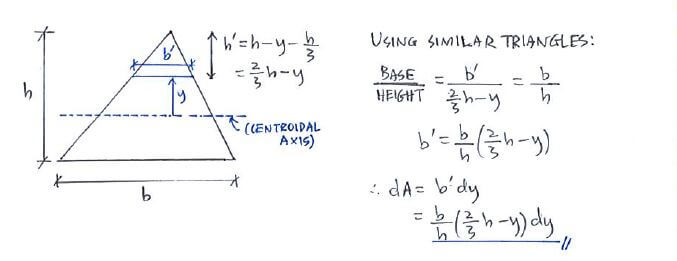 h
b'
y
b
h' = h - y - h/3
= 2/3 h - y
(CENTROIDAL
AXIS)
USING SIMILAR TRIANGLES:
BASE/HEIGHT = b'/(2/3 h - y) = b/h
b' = b/h (2/3 h - y)
∴ dA = b'dy
= b/h (2/3 h - y) dy //